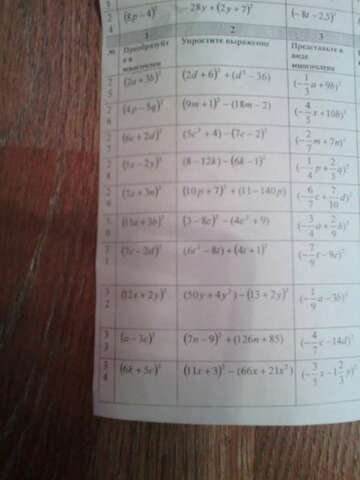 3
4
(8p − 4)²
− 28y + (2y + 7)²
(−8t − 2,5)²
1
2
3
№
Преобразуйт
е в
многочлен
Упростите выражение
Представьте в
виде
многочлена
2
5
(2a + 3b)²
(2d + 6)² + (d² − 36)
(−1/3 a + 9b)²
2
6
(4p − 5q)²
(9m + 1)² − (18m − 2)
(−4/5 x + 10b)²
2
7
(6c + 2d)²
(−2/7 m + 7n)²
2
8
(5x − 2y)²
(8 − 12k) − (6k − 1)²
(−1/4 p + 2/5 q)²
2
9
(10p + 7)² + (11 − 140p)
(−6/7 c + 7/10 d)²
3
0
(3 − 8c)² − (4c² + 9)
(−3/4 a + 2/9 b)²
3
1
(7c − 2d)²
(6t² − 8t) + (4t + 1)²
3
2
(12x + 2y)²
(50y + 4y²) − (13 + 2y)²
(−1/9 a − 3b)²
3
3
(a − 3c)²
(7n − 9)² + (126n + 85)
(−4/7 c − 14d)²
3
4
(6k + 5c)²
(11x + 3)² − (66x + 21x²)
(−3/5 x − 1 2/3 y)²